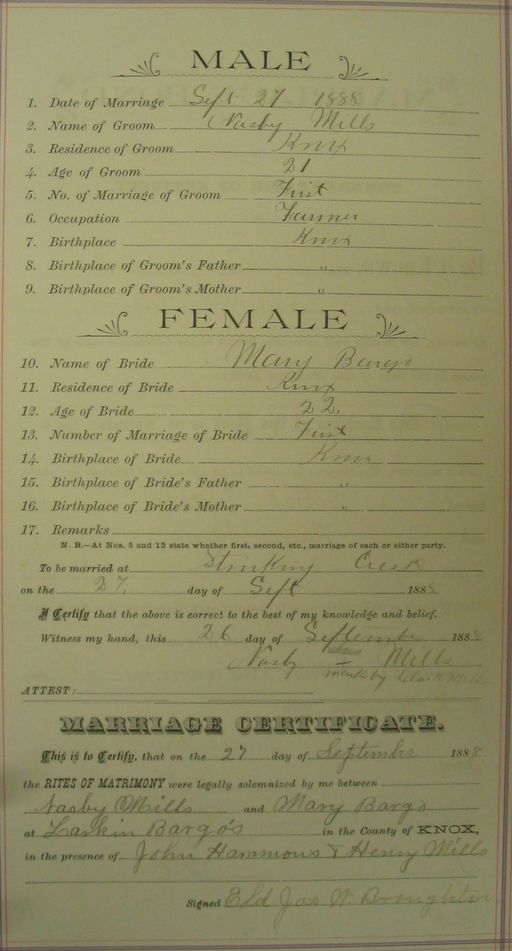 MALE
1. Date of Marriage Sept 27 1888
2. Name of Groom Nasby Mills
3. Residence of Groom Knox
4. Age of Groom 21
5. No. of Marriage of Groom First
6. Occupation Farmer
7. Birthplace Knox
8. Birthplace of Groom's Father "
9. Birthplace of Groom's Mother "
FEMALE
10. Name of Bride Mary Bargo
11. Residence of Bride Knox
12. Age of Bride 22.
13. Number of Marriage of Bride First
14. Birthplace of Bride Knox
15. Birthplace of Bride's Father "
16. Birthplace of Bride's Mother "
17. Remarks
N. B.—At Nos. 5 and 13 state whether first, second, etc., marriage of each or either party.
To be married at Stinking Creek
on the 27, day of Sept 1888
I Certify that the above is correct to the best of my knowledge and belief.
Witness my hand, this 26 day of September 1888
Nasby his Mills
mark by Mills
ATTEST:
MARRIAGE CERTIFICATE.
This is to Certify, that on the 27 day of September 1888
the RITES OF MATRIMONY were legally solemnized by me between
Nasby Mills and Mary Bargo
at Larkin Bargo's in the County of KNOX,
in the presence of John Hammons & Henry Mills
Signed Eld Jas W. Broughton